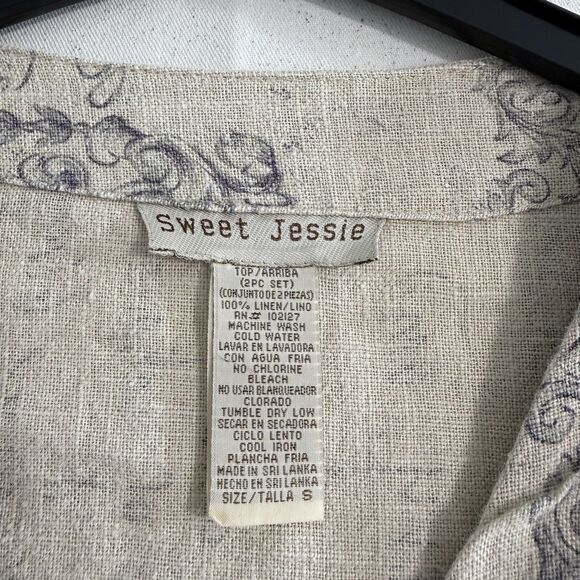 Sweet Jessie
TOP/ARRIBA
(2PC SET)
(CONJUNTO DE 2 PIEZAS)
100% LINEN/LINO
RN# 102127
MACHINE WASH
COLD WATER
LAVAR EN LAVADORA
CON AGUA FRIA
NO CHLORINE
BLEACH
NO USAR BLANQUEADOR
CLORADO
TUMBLE DRY LOW
SECAR EN SECADORA
CICLO LENTO
COOL IRON
PLANCHA FRIA
MADE IN SRI LANKA
HECHO EN SRI LANKA
SIZE/TALLA S